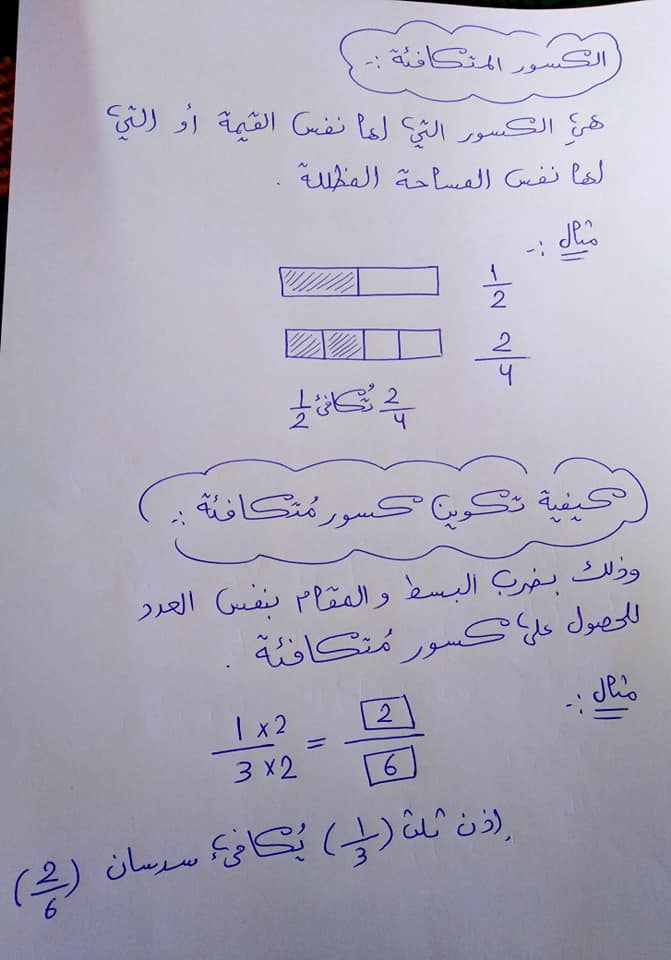 الكسور المتكافئة :-
هي الكسور التي لها نفس القيمة أو التي
لها نفس المساحة المظللة .
مثال :-
1/2
2/4
2/4 تُكافئ 1/2
كيفية تكوين كسور مُتكافئة :-
وذلك بضرب البسط والمقام بنفس العدد
للحصول على كسور مُتكافئة .
مثال :-
1 × 2 / 3 × 2 = 2 / 6
إذن ثلث (1/3) يُكافئ سدسان (2/6)